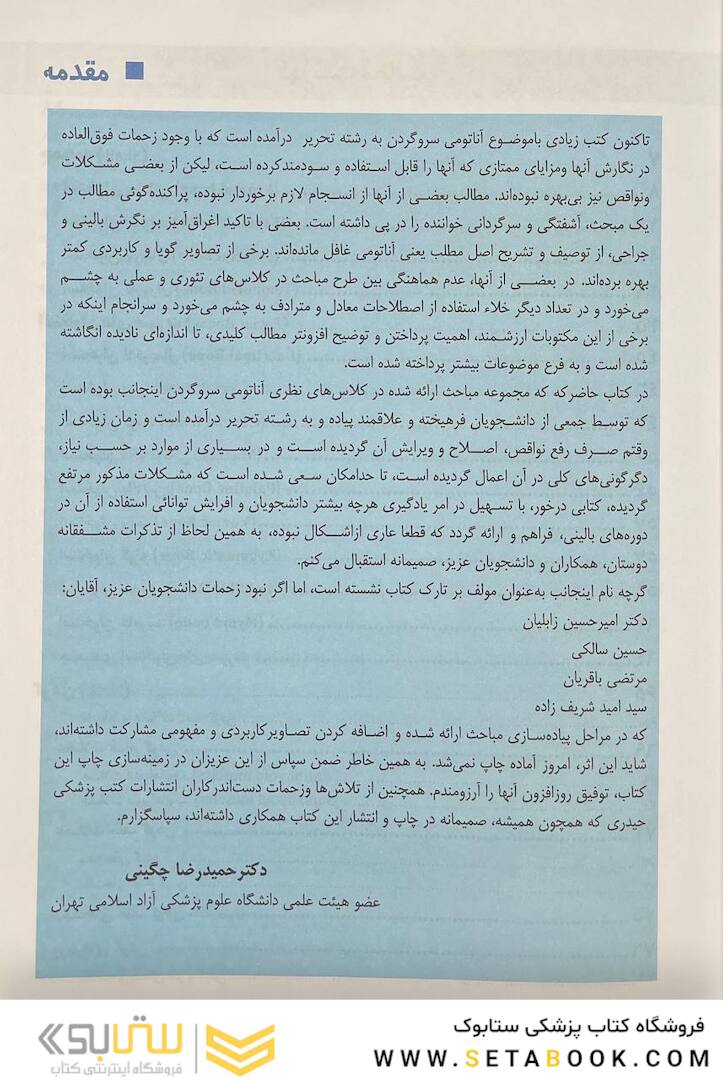 مقدمه
تاکنون کتب زیادی باموضوع آناتومی سروگردن به رشته تحریر درآمده است که با وجود زحمات فوق‌العاده
در نگارش آنها ومزایای ممتازی که آنها را قابل استفاده و سودمندکرده است، لیکن از بعضی مشکلات
ونواقص نیز بی‌بهره نبوده‌اند. مطالب بعضی از آنها از انسجام لازم برخوردار نبوده، پراکنده‌گوئی مطالب در
یک مبحث، آشفتگی و سرگردانی خواننده را در پی داشته است. بعضی با تاکید اغراق‌آمیز بر نگرش بالینی و
جراحی، از توصیف و تشریح اصل مطلب یعنی آناتومی غافل مانده‌اند. برخی از تصاویر گویا و کاربردی کمتر
بهره برده‌اند. در بعضی از آنها، عدم هماهنگی بین طرح مباحث در کلاس‌های تئوری و عملی به چشم
می‌خورد و در تعداد دیگر خلاء استفاده از اصطلاحات معادل و مترادف به چشم می‌خورد و سرانجام اینکه در
برخی از این مکتوبات ارزشمند، اهمیت پرداختن و توضیح افزونتر مطالب کلیدی، تا اندازه‌ای نادیده انگاشته
شده است و به فرع موضوعات بیشتر پرداخته شده است.
در کتاب حاضرکه که مجموعه مباحث ارائه شده در کلاس‌های نظری آناتومی سروگردن اینجانب بوده است
که توسط جمعی از دانشجویان فرهیخته و علاقمند پیاده و به رشته تحریر درآمده است و زمان زیادی از
وقتم صرف رفع نواقص، اصلاح و ویرایش آن گردیده است و در بسیاری از موارد بر حسب نیاز،
دگرگونی‌های کلی در آن اعمال گردیده است، تا حدامکان سعی شده است که مشکلات مذکور مرتفع
گردیده، کتابی درخور، با تسهیل در امر یادگیری هرچه بیشتر دانشجویان و افرایش توانائی استفاده از آن در
دوره‌های بالینی، فراهم و ارائه گردد که قطعا عاری ازاشکال نبوده، به همین لحاظ از تذکرات مشفقانه
دوستان، همکاران و دانشجویان عزیز، صمیمانه استقبال می‌کنم.
گرچه نام اینجانب به‌عنوان مولف بر تارک کتاب نشسته است، اما اگر نبود زحمات دانشجویان عزیز، آقایان:
دکتر امیرحسین زابلیان
حسین سالکی
مرتضی باقریان
سید امید شریف زاده
که در مراحل پیاده‌سازی مباحث ارائه شده و اضافه کردن تصاویرکاربردی و مفهومی مشارکت داشته‌اند،
شاید این اثر، امروز آماده چاپ نمی‌شد. به همین خاطر ضمن سپاس از این عزیزان در زمینه‌سازی چاپ این
کتاب، توفیق روزافزون آنها را آرزومندم. همچنین از تلاش‌ها وزحمات دست‌اندرکاران انتشارات کتب پزشکی
حیدری که همچون همیشه، صمیمانه در چاپ و انتشار این کتاب همکاری داشته‌اند، سپاسگزارم.
دکترحمیدرضا چگینی
عضو هیئت علمی دانشگاه علوم پزشکی آزاد اسلامی تهران
فروشگاه کتاب پزشکی ستابوک
WWW.SETABOOK.COM
ستابوک
فروشگاه اینترنتی کتاب